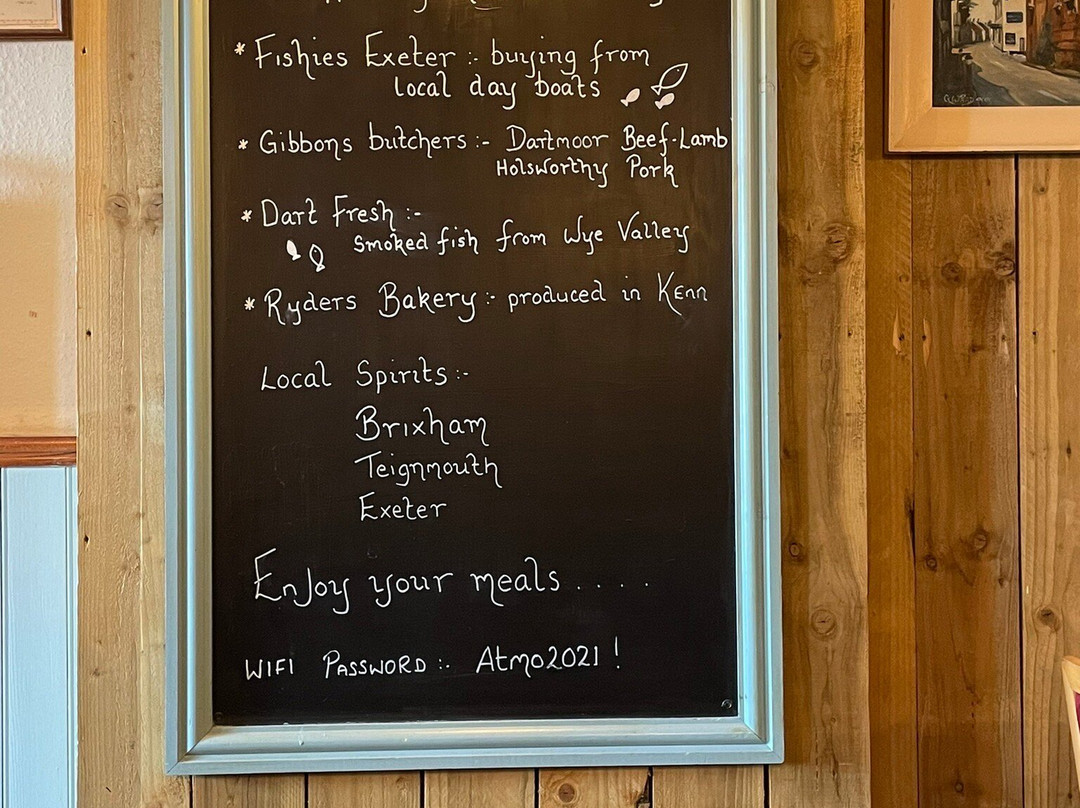 * Fishies Exeter :- buying from
local day boats
* Gibbons butchers :- Dartmoor Beef-Lamb
Holsworthy Pork
* Dart Fresh :-
Smoked fish from Wye Valley
* Ryders Bakery :- produced in Kenn
Local Spirits :-
Brixham
Teignmouth
Exeter
Enjoy your meals . . . .
WIFI PASSWORD :. Atmo2021 !